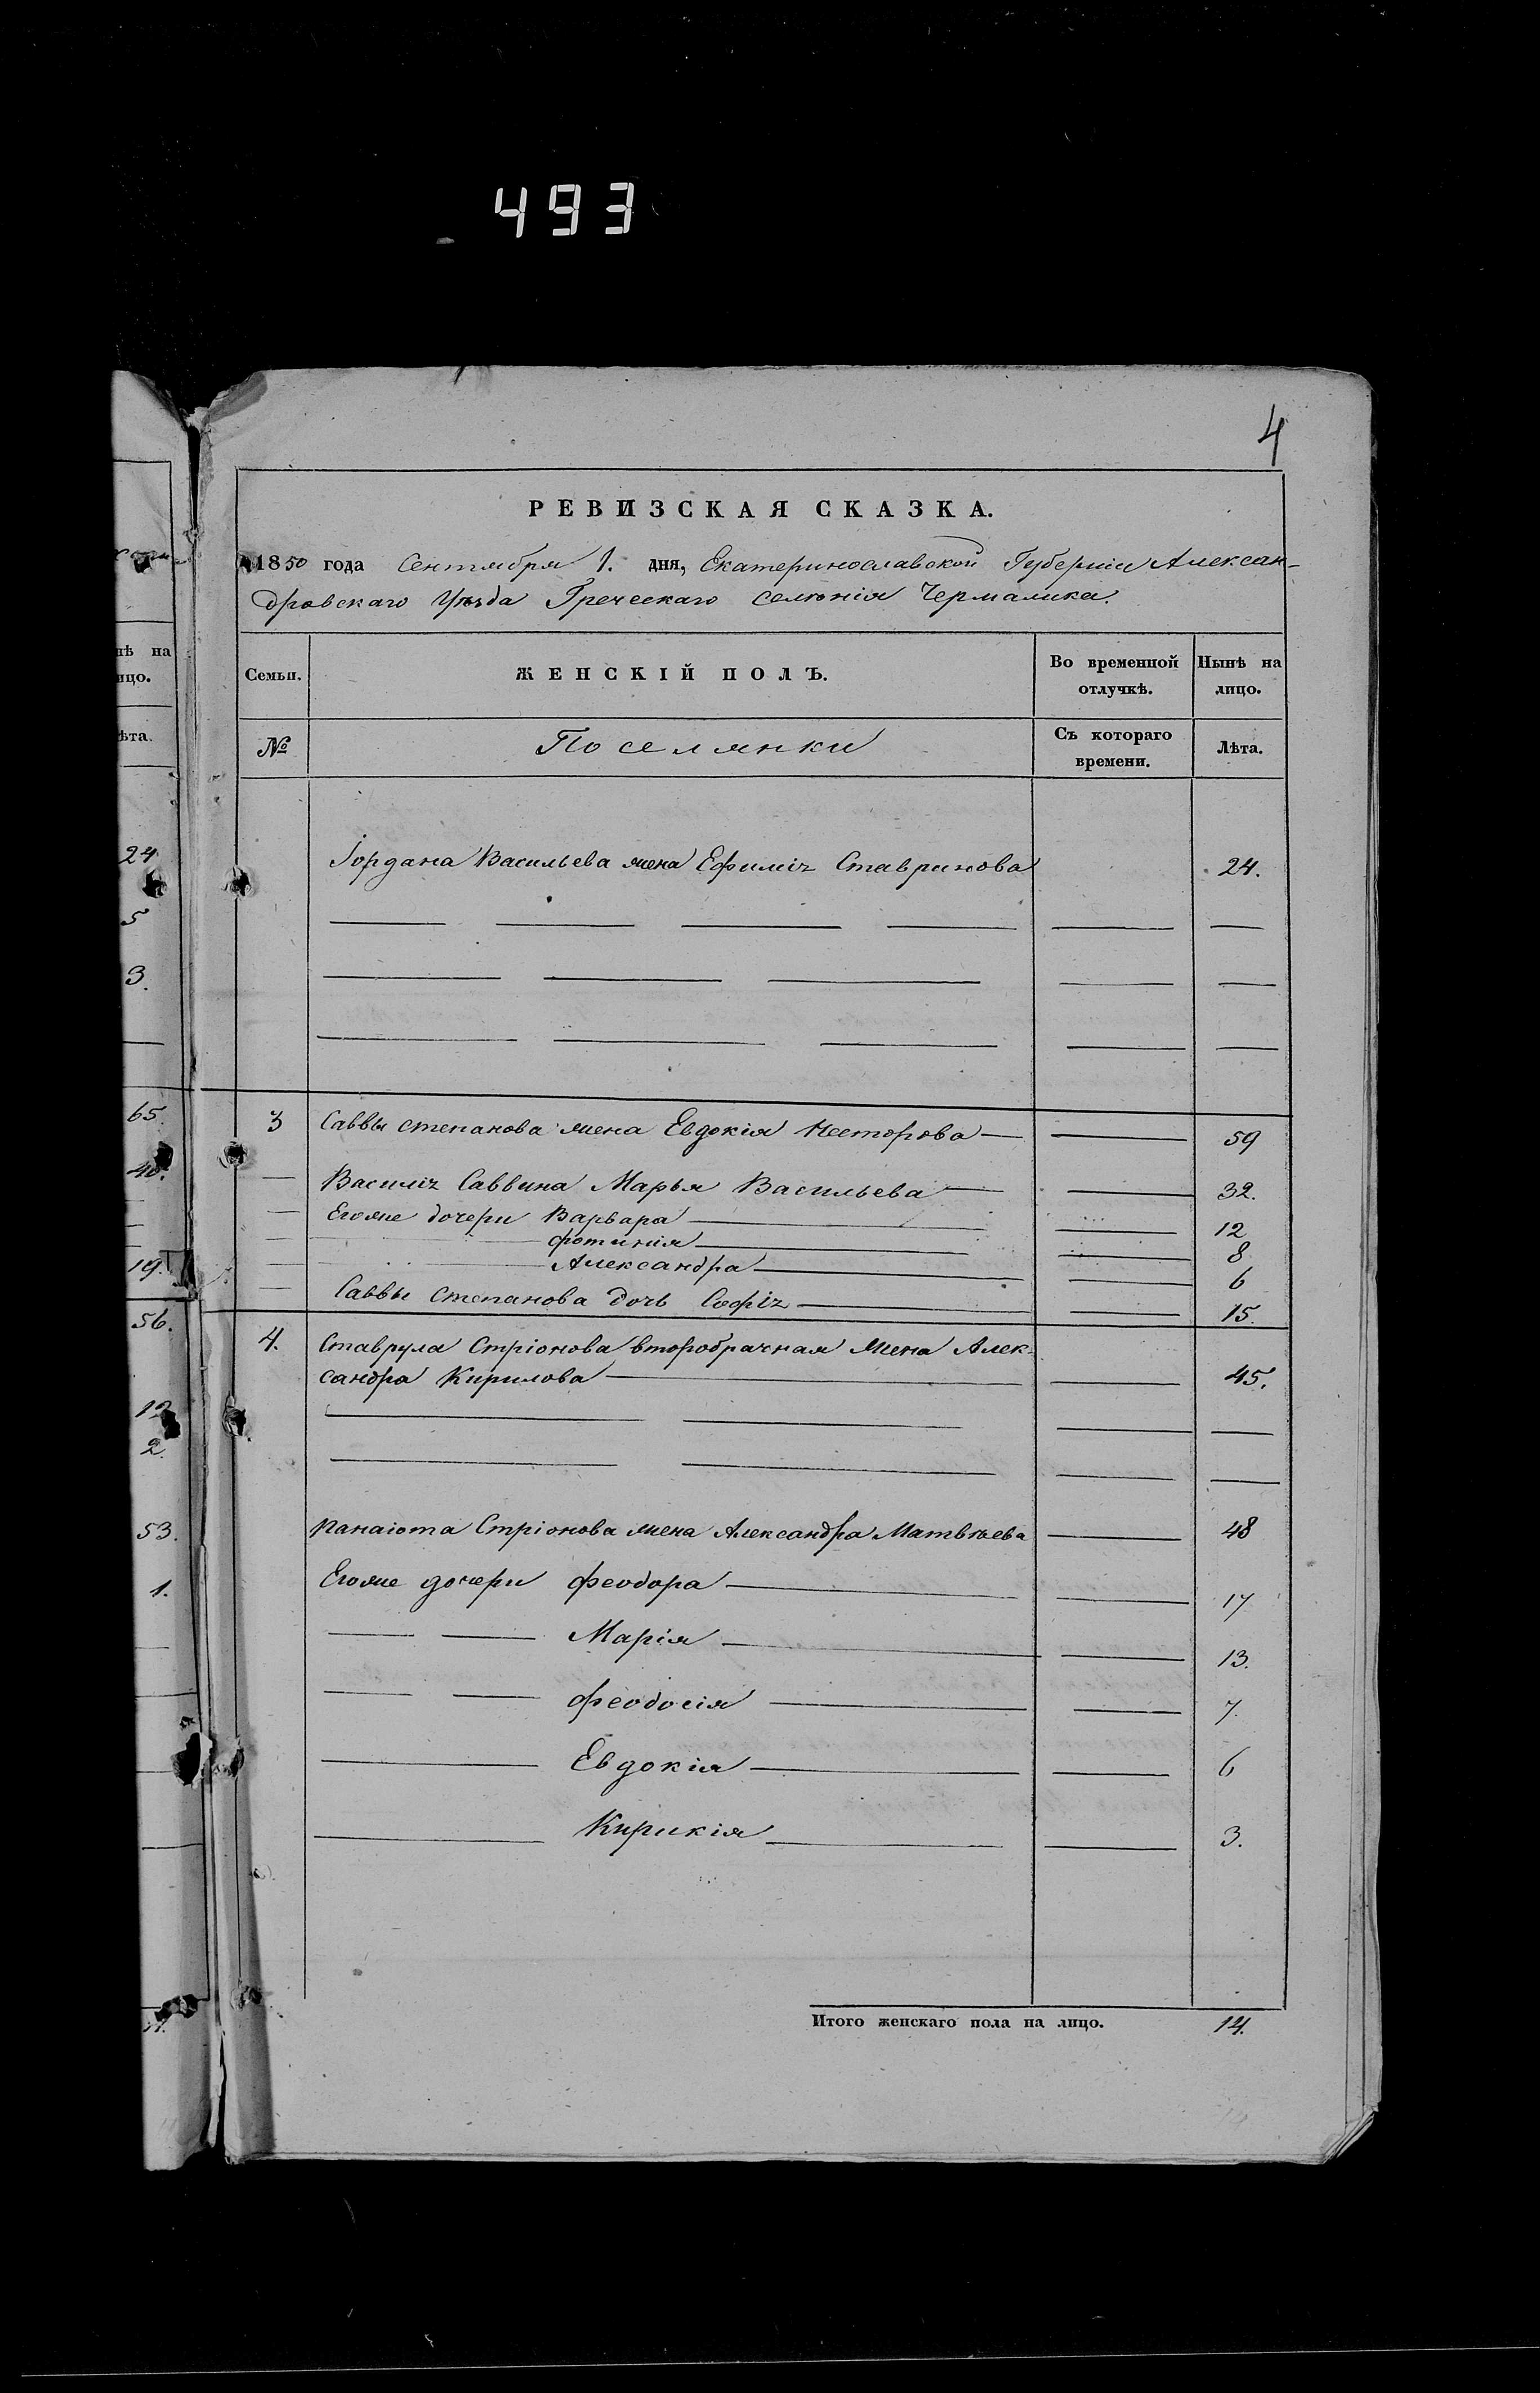 493
4
РЕВИЗСКАЯ СКАЗКА.
1850 года Сентября 1. дня, Екатеринославской Губерніи Алексан-
дровскаго Уѣзда Греческаго селѣнія Чермалика.
Семьи. ЖЕНСКІЙ ПОЛЪ. Во временной отлучкѣ. Нынѣ на лицо.
№ Поселянки Съ котораго времени. Лѣта.
Іордана Васильева жена Ефиміѧ Ставринова 24.
3 Саввы Степанова жена Евдокія Несторова 59
Василіѧ Саввина Марья Васильева 32.
Егоже дочери Варвара 12
Фотинія 8
Александра 6
Саввы Степанова дочь Софіѧ 15.
4. Ставрула Стріонова второбрачная жена Алек-
сандра Кирилова 45.
Панаіота Стріонова жена Александра Матвѣева 48
Егоже дочери Феодора 17
Марія 13.
Феодосія 7.
Евдокія 6
Кирикія 3.
Итого женскаго пола на лицо. 14.
нѣ на
ицо.
ѣта.
24
5
3.
65.
40.
19.
56.
12
2.
53.
1.